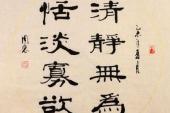 清靜無為
恬淡寡欲